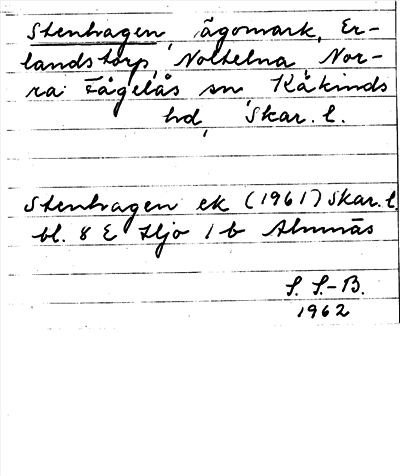 Stenhagen, ägomark, Er-
landstorp, Noltelna, Nor-
ra Fågelås sn, Kåkinds
hd, Skar. l.
Stenhagen ek (1961) Skar. l.
bl. 8 E Hjo 1 b Almnäs
S. S.-B.
1962